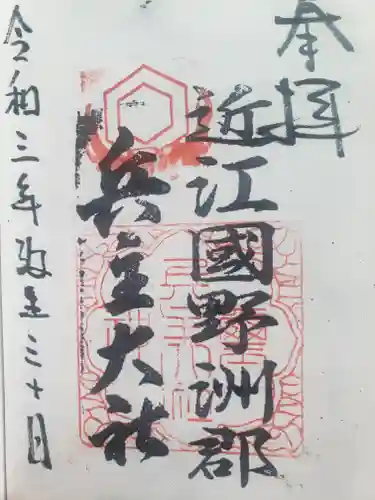 奉拝
近江國野洲郡
兵主大社
令和三年
三十日